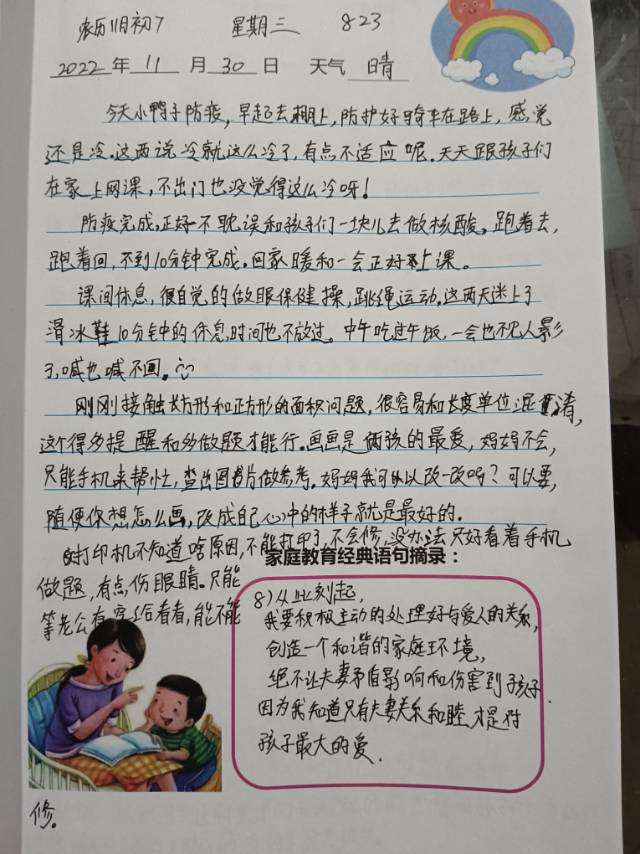 农历11月初7 星期三 823
2022年11月30日 天气 晴
今天小鸭子防疫，早起去棚上，防护好骑车在路上，感觉
还是冷。这两说冷就这么冷了，有点不适应呢。天天跟孩子们
在家上网课，不出门也没觉得这么冷呀！
防疫完成，正好不耽误和孩子们一块儿去做核酸。跑着去，
跑着回，不到10分钟完成。回家暖和一会正好上课。
课间休息，很自觉的做眼保健操，跳绳运动。这两天迷上了
滑冰鞋10分钟的休息时间也不放过。中午吃过午饭，一会也不见人影
了，喊也喊不回。
刚刚接触长方形和正方形的面积问题，很容易和长度单位混淆，
这个得多提醒和多做题才能行。画画是俩孩的最爱，妈妈不会，
只能手机来帮忙，查出图片做参考。妈妈我可以改一改吗？可以要，
随便你想怎么画，改成自己心中的样子就是最好的。
打印机不知道啥原因，不能打印了，不会修，没办法只好看着手机
家庭教育经典语句摘录：
做题，有点伤眼睛。只能
等老公有空了给看看，能不能
8）从此刻起，
我要积极主动的处理好与爱人的关系，
创造一个和谐的家庭环境，
绝不让夫妻矛盾影响和伤害到孩子.
因为我知道只有夫妻关系和睦，才是对
孩子最大的爱.
修。